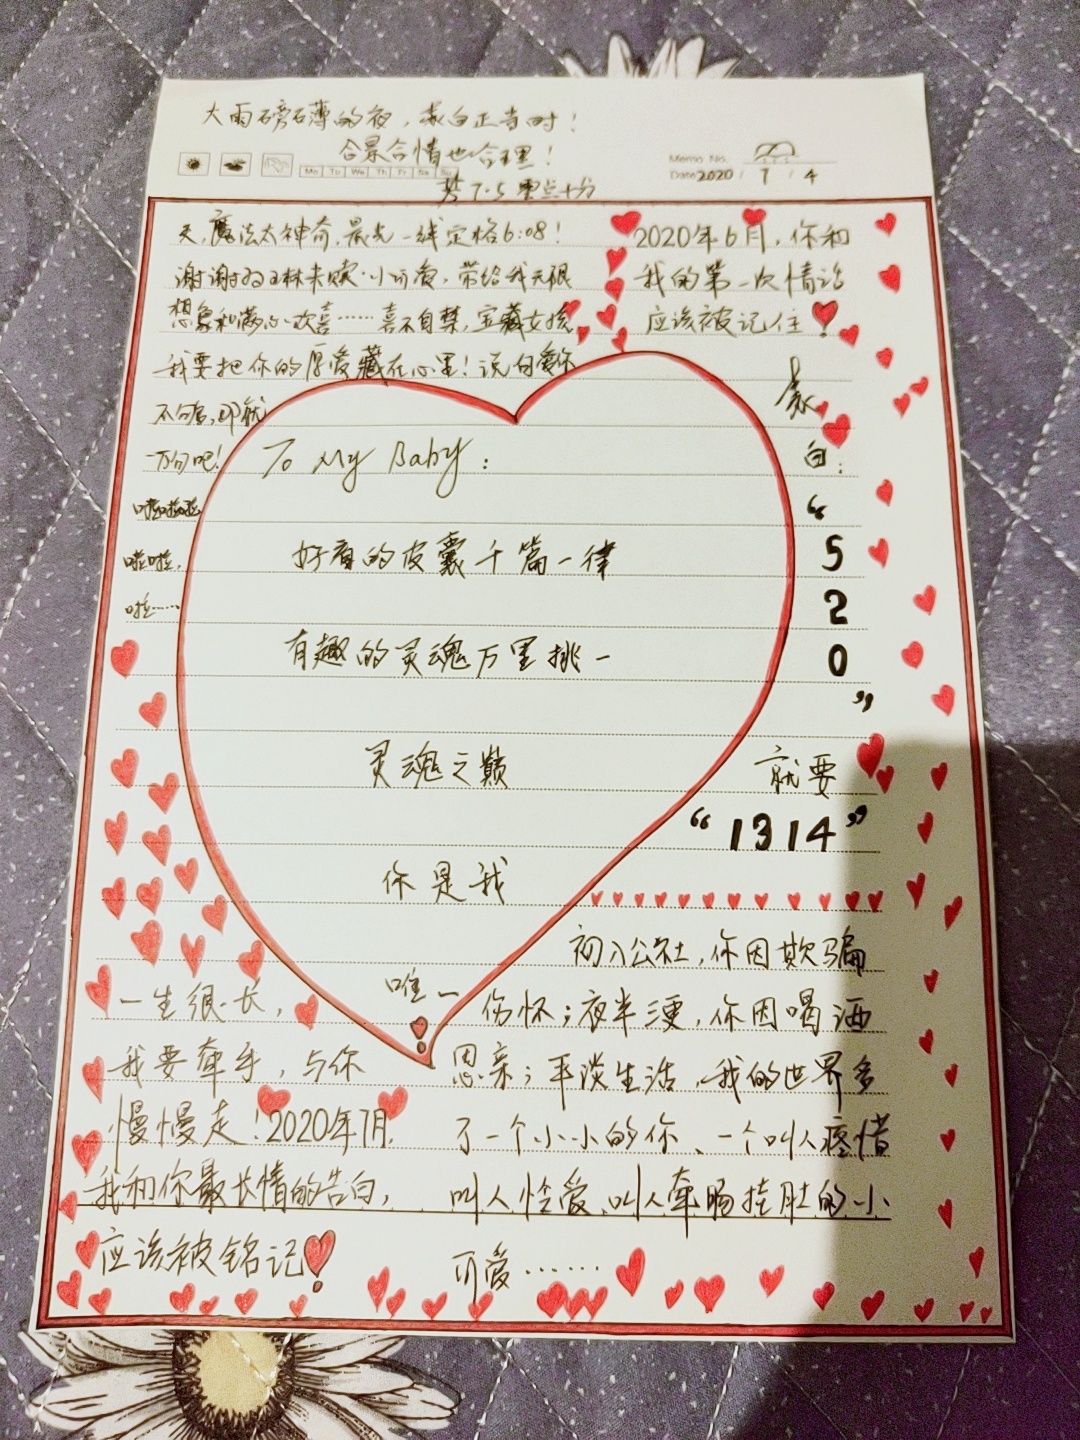 大雨磅礴的夜，表白正当时！
合景合情也合理！
Mo Tu We Th Fr Sa Su
Memo No.
Date 2020 / 7 / 4
7.5 零点十分
天，魔法太神奇，晨光一线定格6:08！
谢谢 小可爱，带给我无限
想象和满心欢喜……喜不自禁，宝藏女孩
我要把你的厚爱藏在心里！说句爱你
不句，那就
万句吧！
啦啦啦
啦啦，
啦……
2020年6月，你和
我的第一次情话
应该被记住！
表
白：
“
5
2
0
”
就要
“1314”
To My Baby：
好看的皮囊千篇一律
有趣的灵魂万里挑一
灵魂之巅
你是我
唯一
！
一生很长，
我要牵手，与你
慢慢走！2020年7月，
我和你最长情的告白，
应该被铭记！
初入公社，你因欺骗
伤怀；夜半三更，你因喝酒
思亲；平淡生活，我的世界多
了一个小小的你、一个叫人疼惜
叫人怜爱、叫人牵肠挂肚的小
可爱……